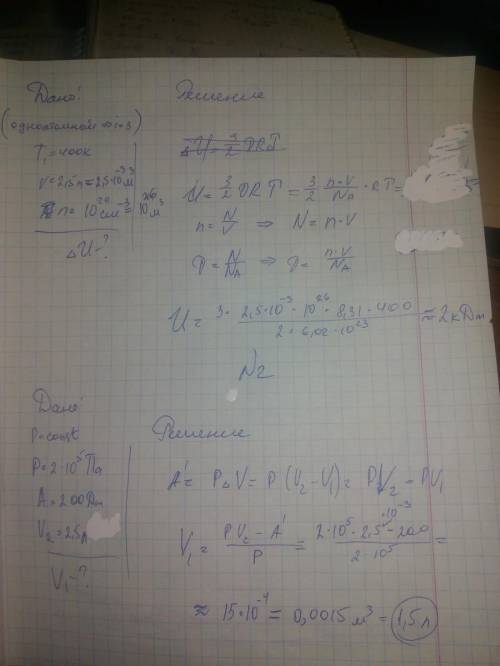 Дано:
(одноатомной => i=3)
T₁=400К
V=2,5л=2,5·10⁻³м³
n=10²⁰см⁻³=10²⁶м⁻³
ΔU-?
Решение
ΔU=3/2 νRT
U=3/2 νRT=3/2 n·V/N_A·RT=
n=N/V => N=n·V
ν=N/N_A => ν=n·V/N_A
U=3·2,5·10⁻³·10²⁶·8,31·400/2·6,02·10²³≈2кДж
N2
Дано:
P=const
P=2·10⁵Па
A=200Дж
V₂=2,5л
V₁-?
Решение
A'=PΔV=P(V₂-V₁)=PV₂-PV₁
V₁=PV₂-A'/P=2·10⁵·2,5·10⁻³-200/2·10⁵=
≈15·10⁻⁴=0,0015м³=1,5л